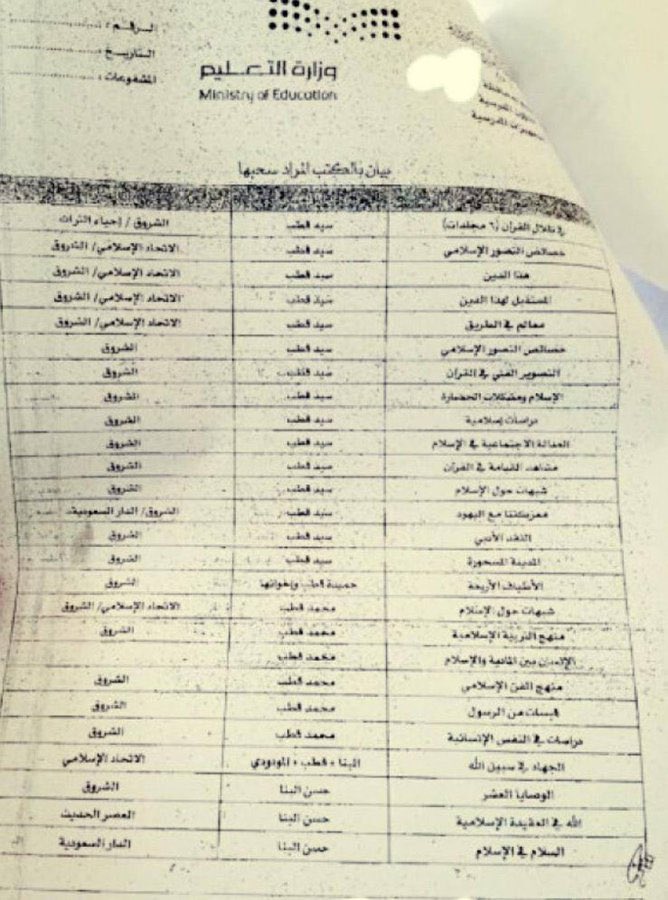 الرقم :
التاريخ :
المشفوعات :
وزارة التعليم
Ministry of Education
بيان بالكتب المراد سحبها
في ظلال القرآن (٦ مجلدات) سيد قطب الشروق / إحياء التراث
خصائص التصور الإسلامي سيد قطب الاتحاد الإسلامي/ الشروق
هذا الدين سيد قطب الاتحاد الإسلامي/ الشروق
المستقبل لهذا الدين سيد قطب الاتحاد الإسلامي/ الشروق
معالم في الطريق سيد قطب الاتحاد الإسلامي/ الشروق
خصائص التصور الإسلامي سيد قطب الشروق
التصوير الفني في القرآن سيد قطب الشروق
الإسلام ومشكلات الحضارة سيد قطب الشروق
دراسات إسلامية سيد قطب الشروق
العدالة الاجتماعية في الإسلام سيد قطب الشروق
مشاهد القيامة في القرآن سيد قطب الشروق
شبهات حول الإسلام سيد قطب الشروق
معركتنا مع اليهود سيد قطب الشروق/ الدار السعودية
النقد الأدبي سيد قطب الشروق
المدينة المسحورة سيد قطب الشروق
الأطياف الأربعة حميدة قطب وإخوانها الشروق
شبهات حول الإسلام محمد قطب الاتحاد الإسلامي/ الشروق
منهج التربية الإسلامية محمد قطب الشروق
الإنسان بين المادية والإسلام محمد قطب
منهج الفن الإسلامي محمد قطب الشروق
قبسات من الرسول محمد قطب الشروق
دراسات في النفس الإنسانية محمد قطب الشروق
الجهاد في سبيل الله البنا + قطب + المودودي الاتحاد الإسلامي
الوصايا العشر حسن البنا الشروق
الله في العقيدة الإسلامية حسن البنا العصر الحديث
السلام في الإسلام حسن البنا الدار السعودية